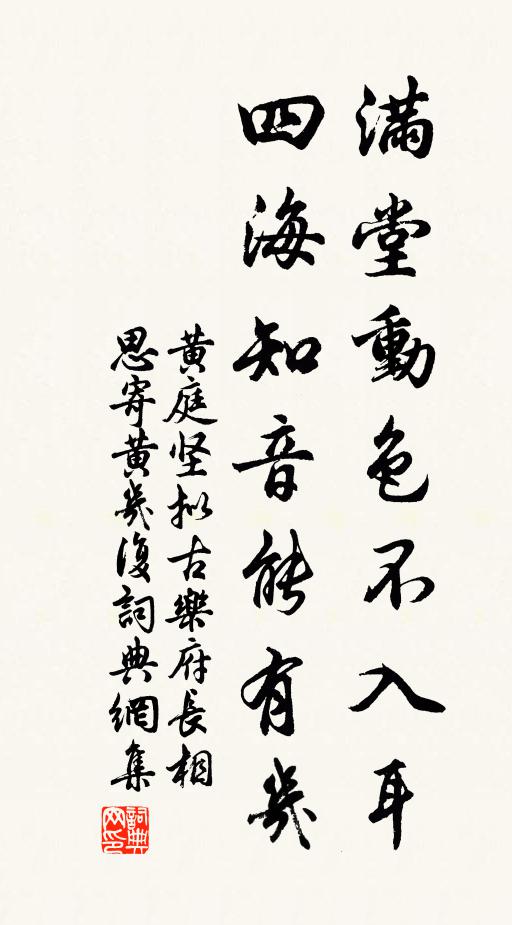 滿堂動色不入耳
四海知音能有幾
黃庭坚拟古樂府長相
思寄黃幾復詞典網集
詞典
网印